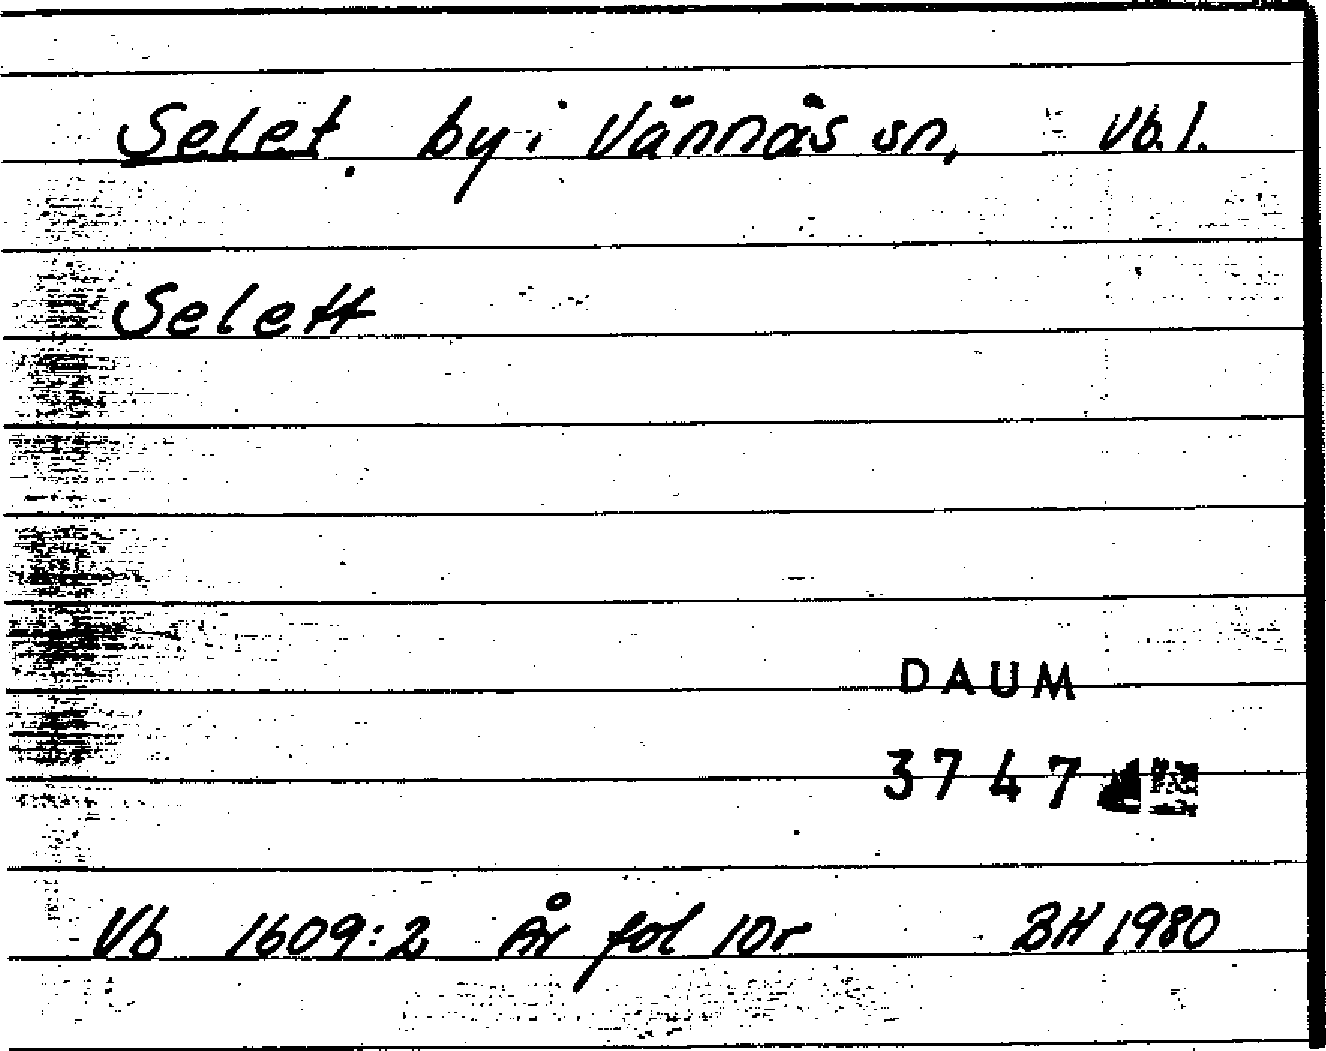 Selet. by i Vännäs sn, Vb. l.
Selett
DAUM
3747
Vb 1609:2 År fol 10r BH 1980